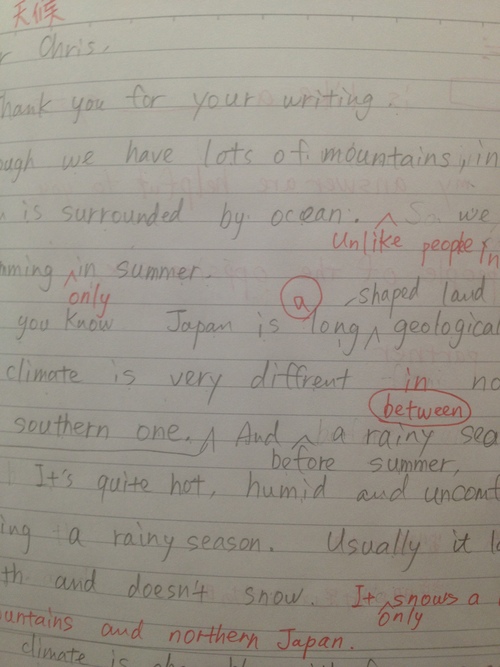 天候
Chris,
hank you for your writing.
ough we have lots of mountains, in
is surrounded by ocean. So we
Unlike people in
mming in summer.
only
a shaped land
you know Japan is long geological
climate is very diffrent in no
between
southern one. And a rainy sea
before summer,
It's quite hot, humid and uncomf
ing a rainy season. Usually it l
th and doesn't snow. It snows a
only
ountains and northern Japan.
climate is